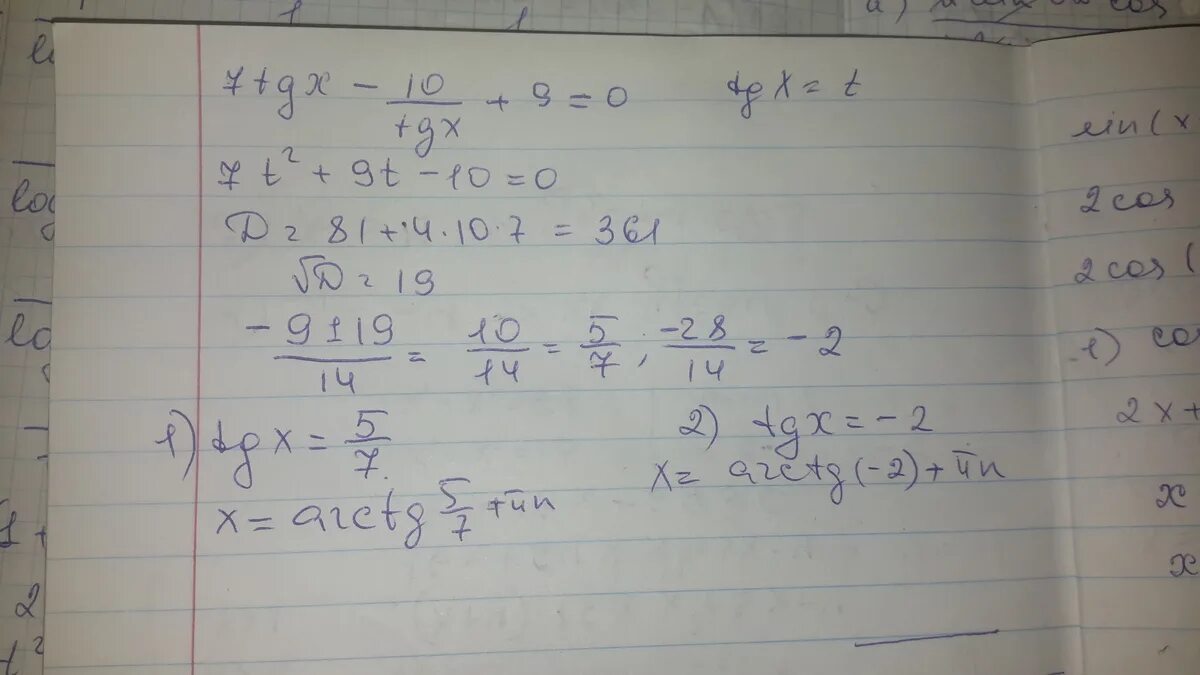 a)
7tgx - 10/tgx + 9 = 0    tgx = t
7t² + 9t - 10 = 0
D = 81 + 4·10·7 = 361
√D = 19
(-9 ± 19)/14 = 10/14 = 5/7; -28/14 = -2
1) tgx = 5/7    2) tgx = -2
x = arctg 5/7 + πn    x = arctg(-2) + πn
sin(x
2cos
2cos(
1) co
2x+
x
x
log
1 +
2
t²